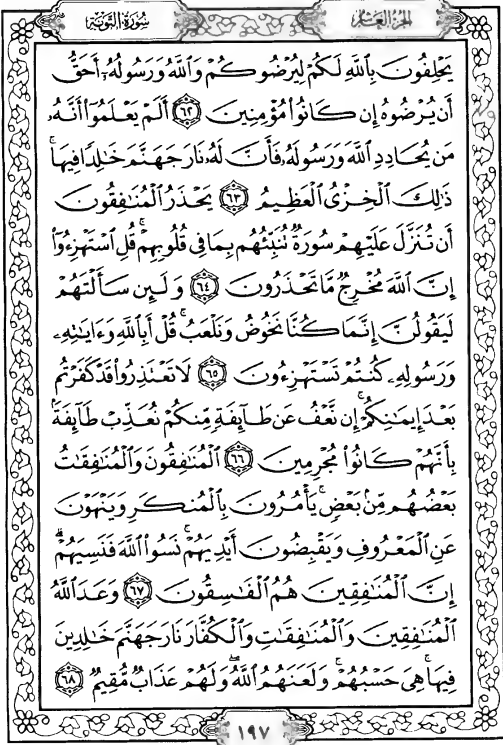 سُورَةُ التَّوْبَةِ
الجُزْءُ العَاشِرُ
يَحْلِفُونَ بِاللَّهِ لَكُمْ لِيُرْضُوكُمْ وَاللَّهُ وَرَسُولُهُۥٓ أَحَقُّ
أَن يُرْضُوهُ إِن كَانُوا۟ مُؤْمِنِينَ ٦٢ أَلَمْ يَعْلَمُوٓا۟ أَنَّهُۥ
مَن يُحَادِدِ ٱللَّهَ وَرَسُولَهُۥ فَأَنَّ لَهُۥ نَارَ جَهَنَّمَ خَـٰلِدًا فِيهَا ۚ
ذَٰلِكَ ٱلْخِزْىُ ٱلْعَظِيمُ ٦٣ يَحْذَرُ ٱلْمُنَـٰفِقُونَ
أَن تُنَزَّلَ عَلَيْهِمْ سُورَةٌ تُنَبِّئُهُم بِمَا فِى قُلُوبِهِمْ ۚ قُلِ ٱسْتَهْزِءُوٓا۟
إِنَّ ٱللَّهَ مُخْرِجٌ مَّا تَحْذَرُونَ ٦٤ وَلَئِن سَأَلْتَهُمْ
لَيَقُولُنَّ إِنَّمَا كُنَّا نَخُوضُ وَنَلْعَبُ ۚ قُلْ أَبِٱللَّهِ وَءَايَـٰتِهِۦ
وَرَسُولِهِۦ كُنتُمْ تَسْتَهْزِءُونَ ٦٥ لَا تَعْتَذِرُوا۟ قَدْ كَفَرْتُم
بَعْدَ إِيمَـٰنِكُمْ ۚ إِن نَّعْفُ عَن طَآئِفَةٍ مِّنكُمْ نُعَذِّبْ طَآئِفَةًۢ
بِأَنَّهُمْ كَانُوا۟ مُجْرِمِينَ ٦٦ ٱلْمُنَـٰفِقُونَ وَٱلْمُنَـٰفِقَـٰتُ
بَعْضُهُم مِّنۢ بَعْضٍ ۚ يَأْمُرُونَ بِٱلْمُنكَرِ وَيَنْهَوْنَ
عَنِ ٱلْمَعْرُوفِ وَيَقْبِضُونَ أَيْدِيَهُمْ ۚ نَسُوا۟ ٱللَّهَ فَنَسِيَهُمْ ۗ
إِنَّ ٱلْمُنَـٰفِقِينَ هُمُ ٱلْفَـٰسِقُونَ ٦٧ وَعَدَ ٱللَّهُ
ٱلْمُنَـٰفِقِينَ وَٱلْمُنَـٰفِقَـٰتِ وَٱلْكُفَّارَ نَارَ جَهَنَّمَ خَـٰلِدِينَ
فِيهَا ۚ هِىَ حَسْبُهُمْ ۚ وَلَعَنَهُمُ ٱللَّهُ ۖ وَلَهُمْ عَذَابٌ مُّقِيمٌ ٦٨
١٩٧